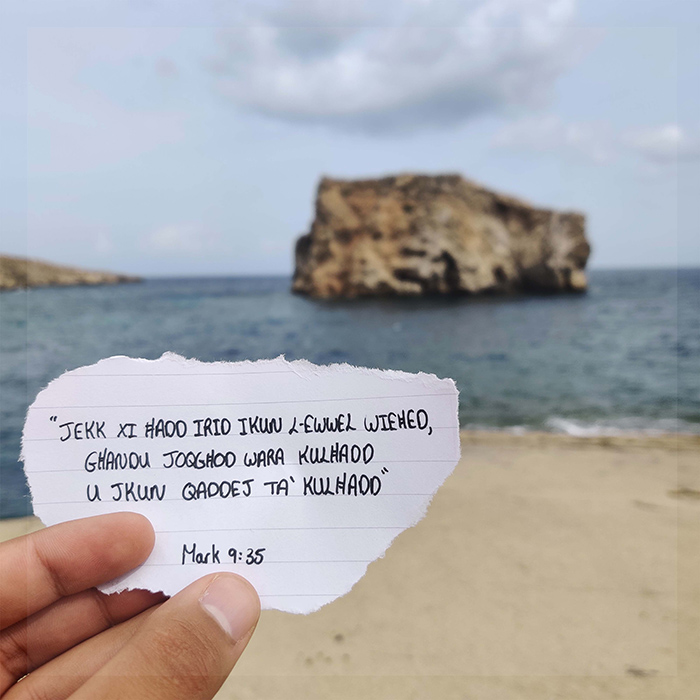 "JEKK XI ĦADD IRID IKUN L-EWWEL WIEĦED,
GĦANDU JOQGĦOD WARA KULĦADD
U JKUN QADDEJ TA' KULĦADD"
Mark 9:35